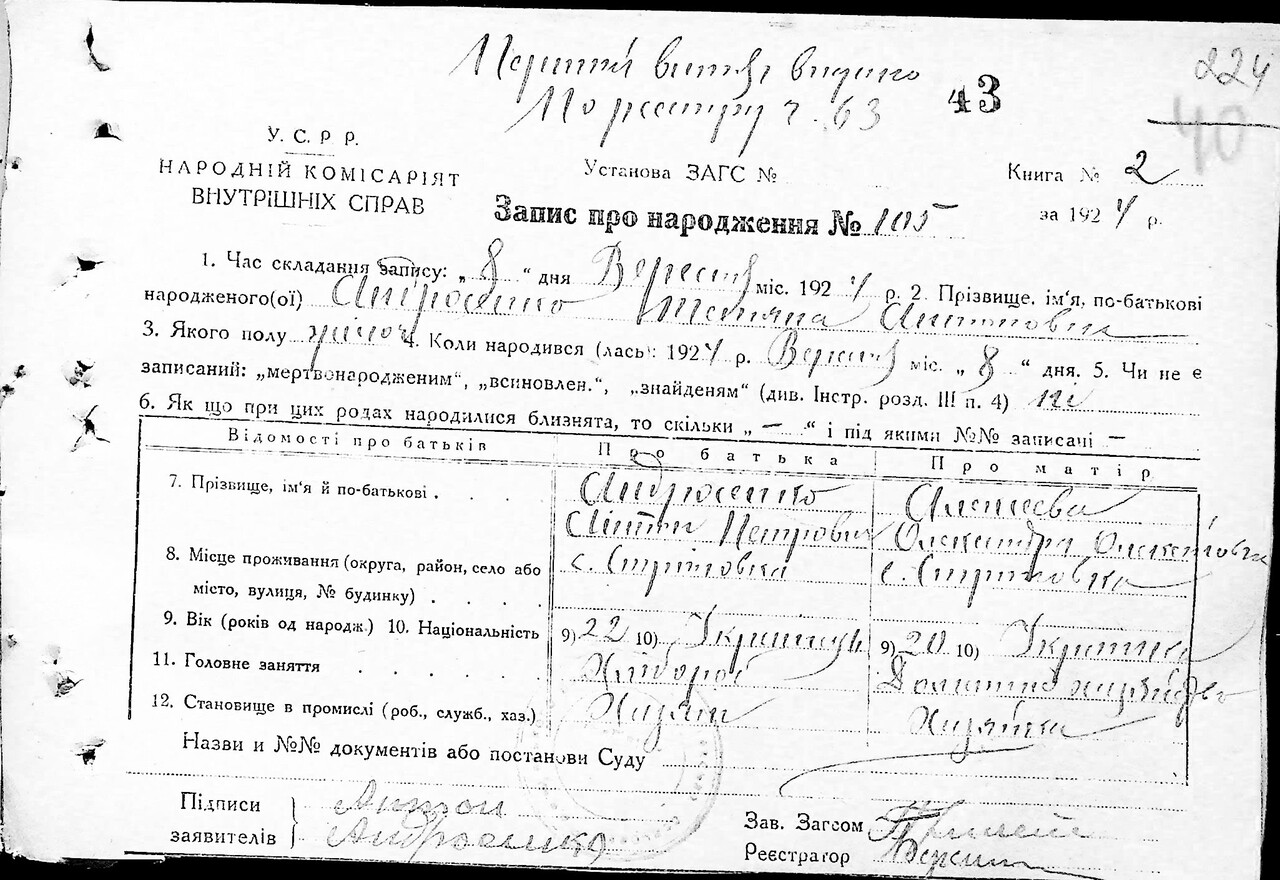 224
Перший витяг видано
По реєстру ч. 63
43
40
У. С. Р. Р.
НАРОДНІЙ КОМІСАРІЯТ
ВНУТРІШНІХ СПРАВ
Установа ЗАГС №
Книга № 2
за 1924 р.
Запис про народження № 105
1. Час складання запису: „ 8 “ дня Вересня міс. 1924 р. 2. Прізвище, ім'я, по-батькові
народженого(ої) Андросенко Тетяна Антоновна
3. Якого полу жіноч 4. Коли народився (лась): 1924 р. Вересня міс. „ 8 “ дня. 5. Чи не є
записаний: „мертвонародженим“, „всиновлен.“, „знайденям“ (див. Інстр. розд. III п. 4) ні
6. Як що при цих родах народилися близнята, то скільки „ — “ і під якими №№ записачі —
Відомості про батьків Про батька Про матір
7. Прізвище, ім'я й по-батькові . . . . Андросенко Алексеева
Антон Петрович Олександра
8. Місце проживання (округа, район, село або с. с.
місто, вулиця, № будинку) . . . .
9. Вік (років од народж.) 10. Національність 9) 22 10) Українець 9) 20 10) Українка
11. Головне заняття . . . . . . Хлібороб Домашне
12. Становище в промислі (роб., служб., хаз.) Хазяїн Хазяйка
Назви и №№ документів або постанови Суду
Підписи Антон
заявителів Андросенко
Зав. Загсом
Реєстратор